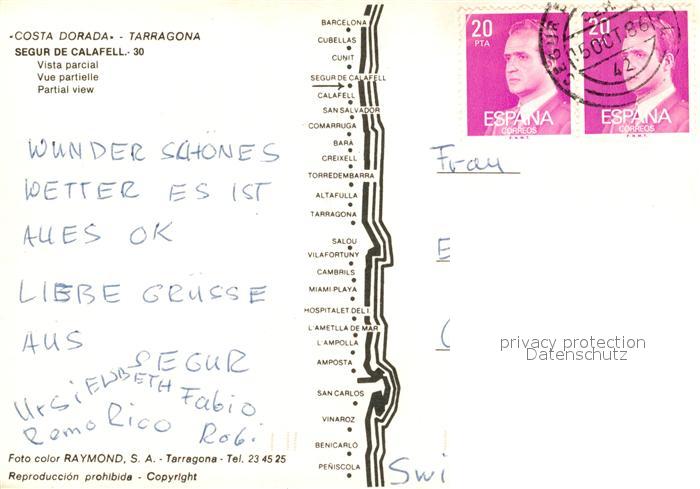 «COSTA DORADA» - TARRAGONA
SEGUR DE CALAFELL.- 30
Vista parcial
Vue partielle
Partial view
WUNDER SCHÖNES
WETTER ES IST
ALLES OK
LIEBE GRÜSSE
AUS
SEGUR
Ursi ELSBETH Fabio
Remo Rico Robi
Foto color RAYMOND, S. A. - Tarragona - Tel. 23 45 25
Reproducción prohibida - Copyright
BARCELONA
CUBELLAS
CUNIT
SEGUR DE CALAFELL
CALAFELL
SAN SALVADOR
COMARRUGA
BARA
CREIXELL
TORREDEMBARRA
ALTAFULLA
TARRAGONA
SALOU
VILAFORTUNY
CAMBRILS
MIAMI PLAYA
HOSPITALET DEL I.
L'AMETLLA DE MAR
L'AMPOLLA
AMPOSTA
SAN CARLOS
VINAROZ
BENICARLÓ
PEÑISCOLA
20
PTA
ESPAÑA
CORREOS
F.N.M.T.
20
ESPAÑA
CORREOS
F.N.M.T.
SEGUR
05 OCT 86
42
Frau
E
Swi
privacy protection
Datenschutz